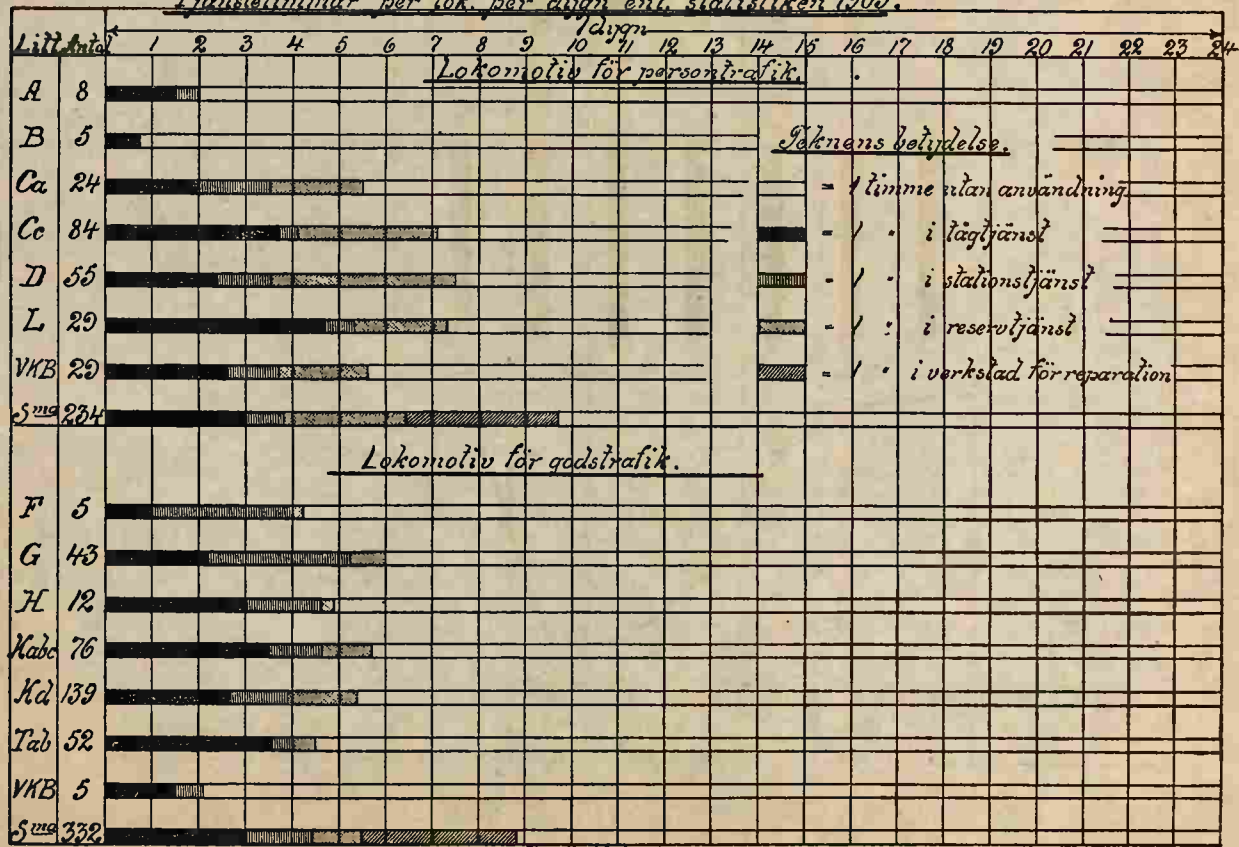 Tjänstetimmar per lok. per dygn enl. statistiken 1903.
1 dygn
Litt Antal 1 2 3 4 5 6 7 8 9 10 11 12 13 14 15 16 17 18 19 20 21 22 23 24
Lokomotiv för persontrafik.
A 8
B 5
Ca 24
Cc 84
D 55
L 29
VKB 29
Sma 234
Teknens betydelse.
= 1 timme utan användning
= 1 " i tågtjänst
= 1 " i stationstjänst
= 1 " i reservtjänst
= 1 " i verkstad för reparation
Lokomotiv för godstrafik.
F 5
G 43
H 12
Kabc 76
Kd 139
Tab 52
VKB 5
Sma 332